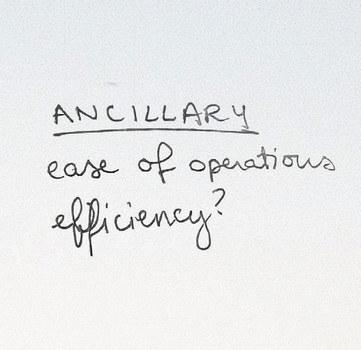 ANCILLARY
ease of operations
efficiency?